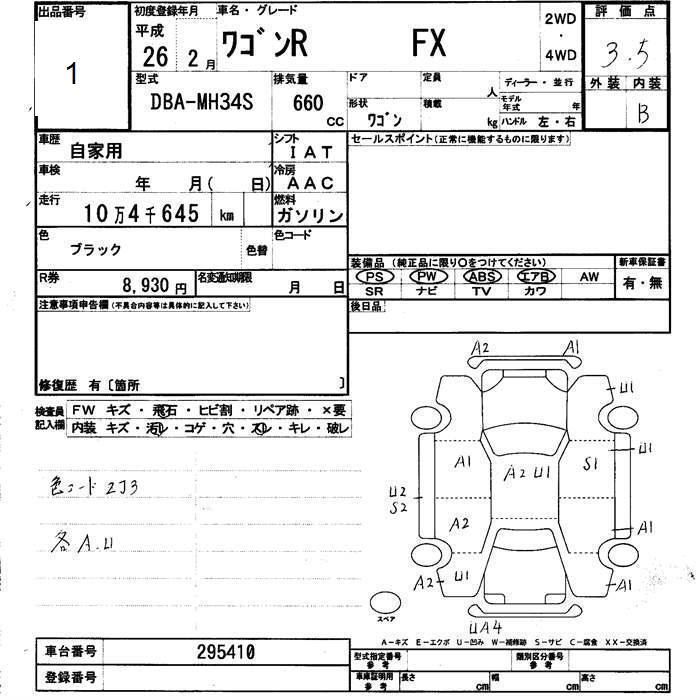 出品番号
1
初度登録年月
平成
26 2 月
車名・グレード
ワゴンR FX
2WD
・
4WD
評価点
3.5
外装 内装
B
型式
DBA-MH34S
排気量
660
CC
ドア
定員
人
形状
ワゴン
積載
kg
ディーラー・並行
モデル年式 年
ハンドル 左・右
車歴
自家用
シフト
IAT
車検
年 月( 日)
冷房
AAC
走行
10万4千645 km
燃料
ガソリン
色
ブラック
色替
色コード
R券
8,930 円
名変通知期限
月 日
セールスポイント(正常に機能するものに限ります)
装備品 (純正品に限り○をつけてください)
PS PW ABS エアB AW
SR ナビ TV カワ
新車保証書
有・無
後日品
注意事項申告欄(不具合内容等は具体的に記入して下さい)
修復歴 有〔箇所 〕
検査員記入欄
FW キズ・飛石・ヒビ割・リペア跡・×要
内装 キズ・汚レ・コゲ・穴・スレ・キレ・破レ
色コード 2J3
各A.U
A2 A1
U1
A1 A2 U1 S1 U1
U2
S2
A2 A1
A2 U1 A1
UA4
スペア
A−キズ E−エクボ U−凹み W−補修跡 S−サビ C−腐食 XX−交換済
車台番号 295410
登録番号
型式指定番号
参考
類別区分番号
参考
車庫証明用
参考
長さ cm
幅 cm
高さ cm